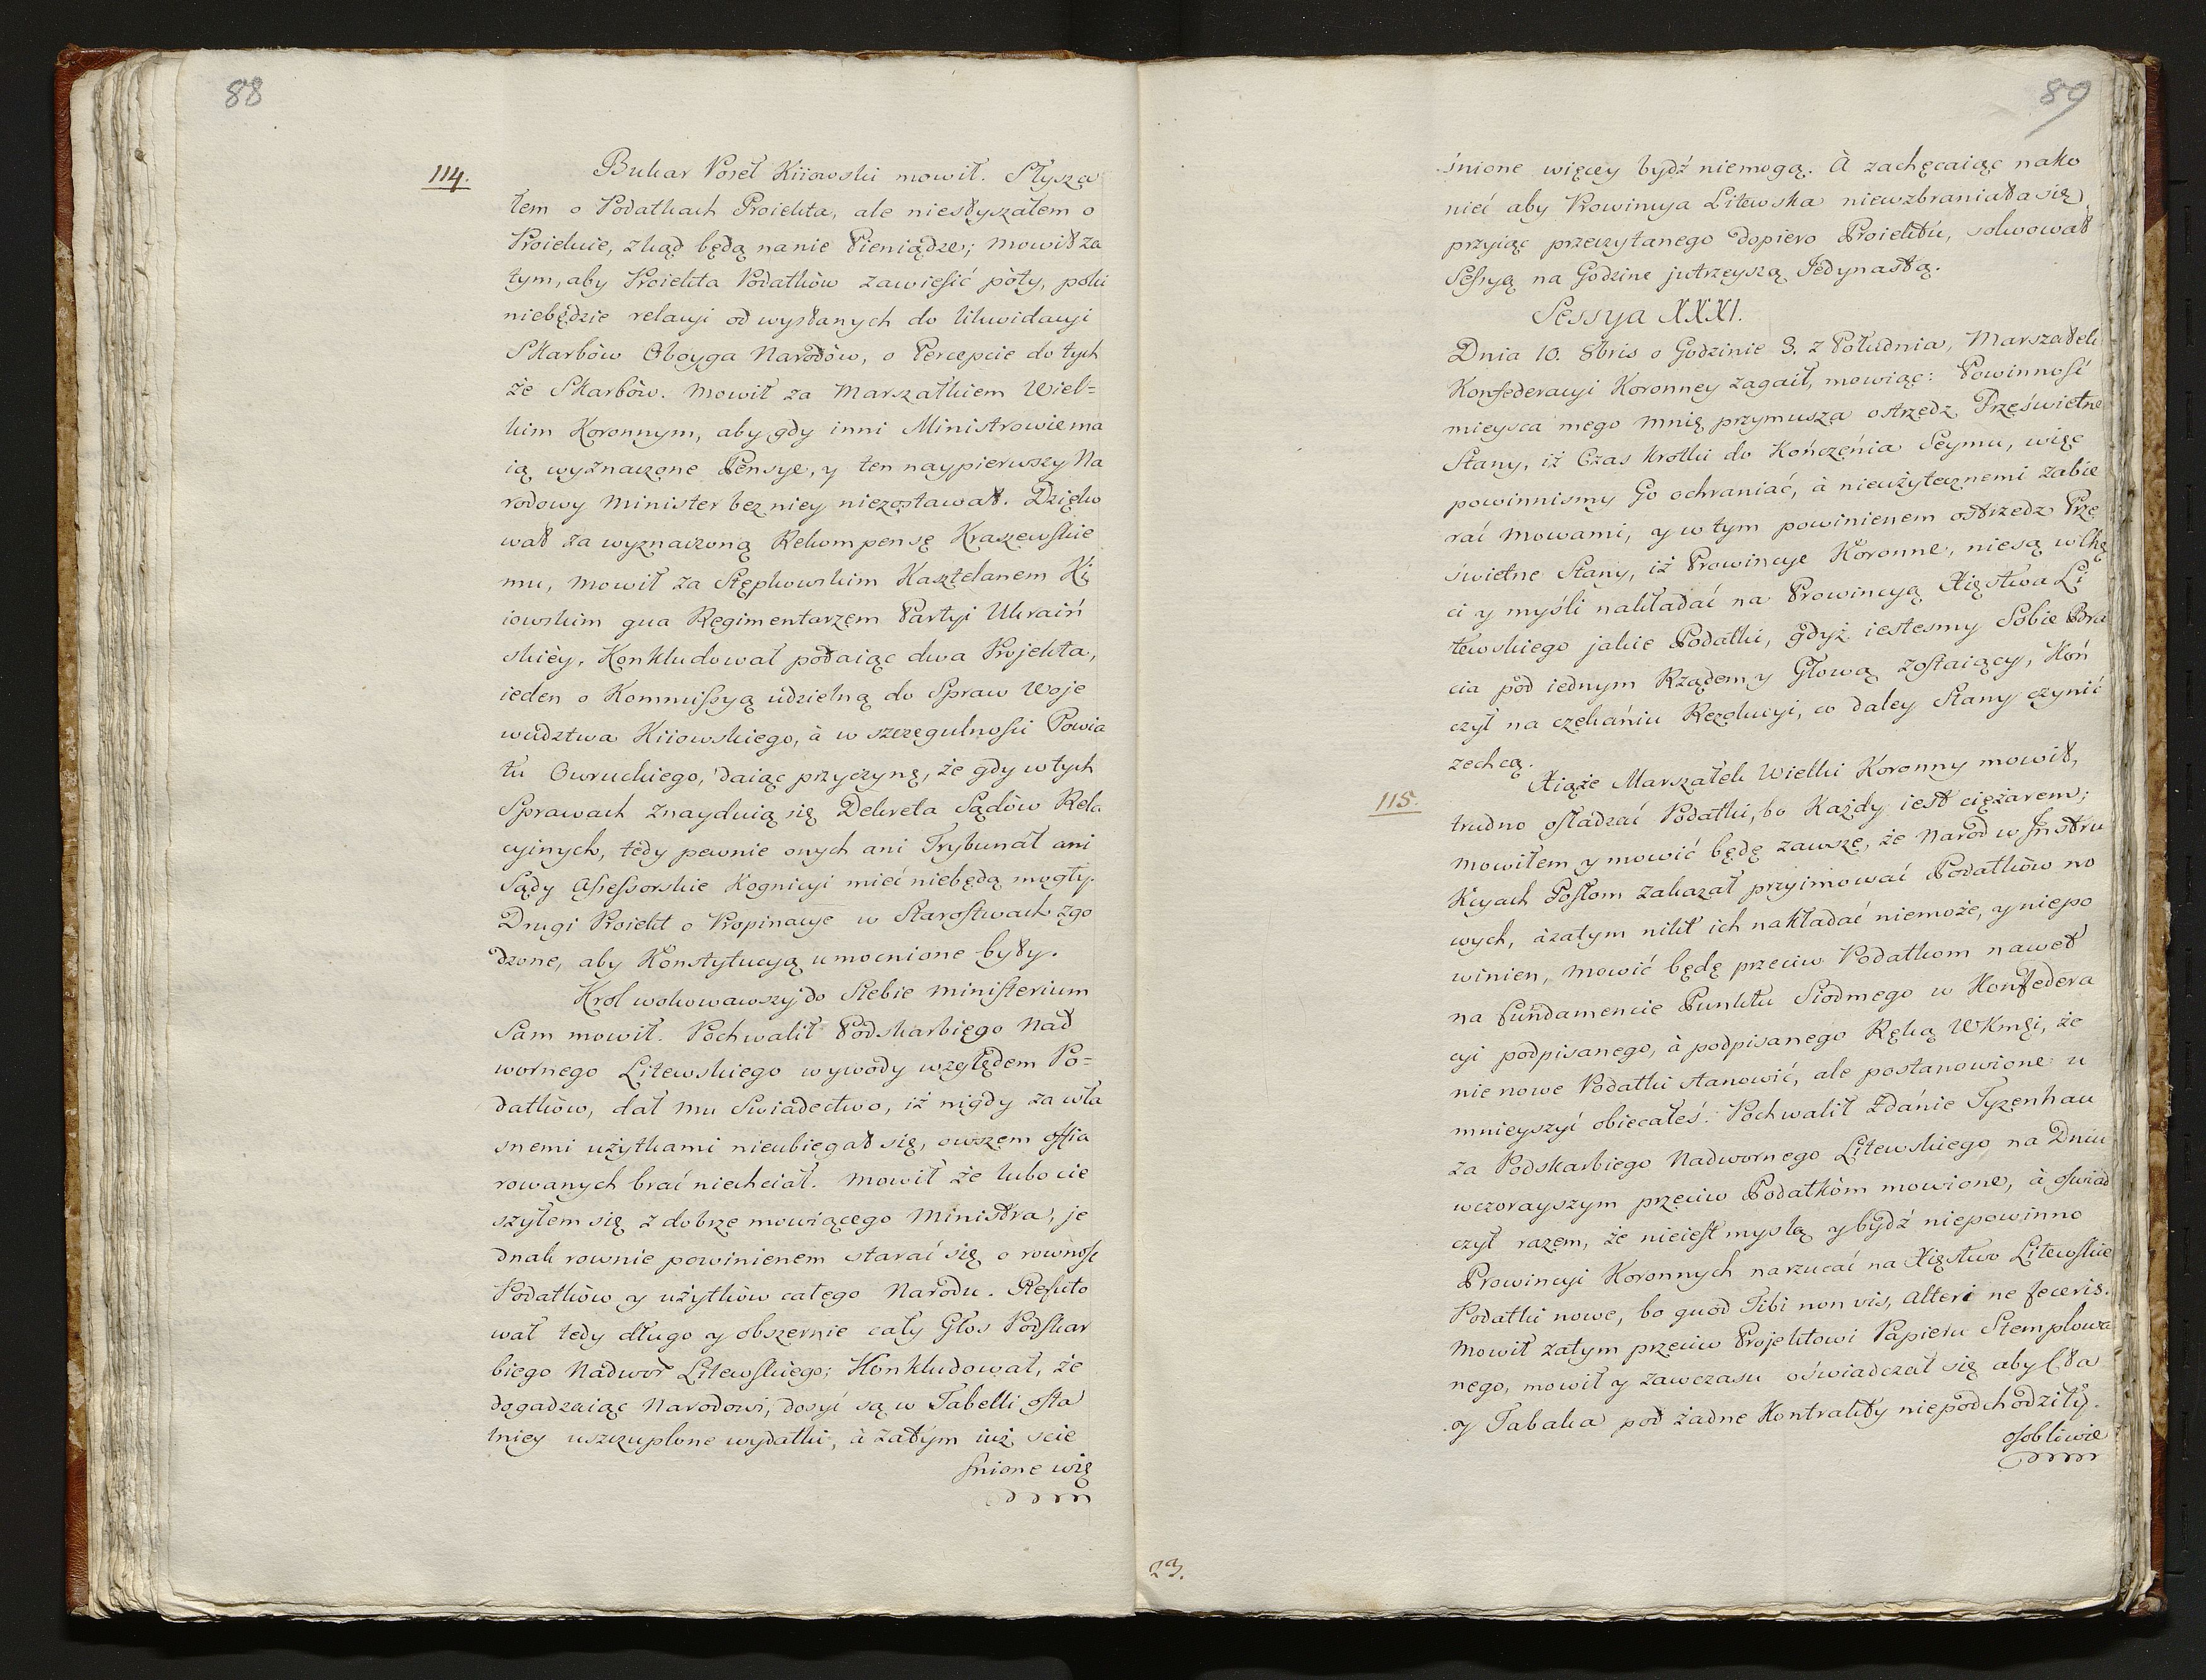 88
114.
Bukar Poseł Kiiowski mowił. Słysza
łem o Podatkach Proiekta, ale niesłyszałem o
Proiekcie, zkąd będą na nie Pieniądze; mowił za
tym, aby Proiekta Podatków zawiesić póty, poki
niebędzie relacyi od wysłanych do likwidacyi
Skarbów Oboyga Narodów, o Percepcie do tych
że Skarbów. Mowił za Marszałkiem Wiel=
kim Koronnym, aby gdy inni Ministrowie ma
ią wyznaczone Pensye, y ten naypierwszy Na
rodowy Minister bez niey niezostawał. Dzięko
wał za wyznaczoną Rekompensę Kraszewskie
mu, mowił za Stępkowskim Kasztelanem Ki
iowskim qua Regimentarzem Partyi Ukraiń
skiéy. Konkludował podaiąc dwa Projekta,
ieden o Kommissyą udzielną do Spraw Woje
wudztwa Kiiowskiego, à w szczegulności Powia
tu Owruckiego, daiąc przyczynę, że gdy w tych
Sprawach znayduią się Dekreta Sądów Rela
cyinych, tedy pewnie onych ani Trybunał ani
Sądy Assessorskie Kognicyi mieć niebędą mogły.
Drugi Proiekt o Propinacye w Starostwach zgo
dzone, aby Konstytucyą umocnione były.
Krol wokowawszy do Siebie Ministerium
Sam mowił. Pochwalił Podskarbiego Nad
wornego Litewskiego wywody względem Po=
datków, dał mu Swiadectwo, iż nigdy za wła
snemi użytkami nieubiegał się, owszem offia
rowanych brać niechciał. Mowił że lubo cie
szyłem się z dobrze mowiącego Ministra, je
dnak rownie powinienem starać się o rownosc
Podatków y użytków całego Narodu. Refuto
wał tedy długo y obszernie cały Głos Podskar
biego Nadwor Litewskiego; Konkludował, że
dogadzaiąc Narodowi, dosyć są w Tabelli osta
tniey uszczuplone wydatki, à zatym iuż scie
snione wię
89
śnione więcey bydź niemogą. À zachęcaiąc nako
nieć aby Prowincya Litewska niewzbraniała się
przyiąć przeczytanego dopiero Proiektu, solwował
Sessyą na Godzinę jutrzeyszą Jedynastą.
Sessya XXXI.
Dnia 10. 8bris o Godzinie 3. z Południa, Marszałek
Konfederacyi Koronney zagaił, mowiąc: Powinność
mieysca mego mnię przymusza ostrzedz Prześwietne
Stany, iż Czas krotki do Kończenia Seymu, więc
powinnismy Go ochraniać, à nieużytecznemi zabie
rać mowami, y w tym powinienem ostrzedz Prze
świetne Stany, iż Prowincye Koronne, niesą w Chę
ci y myśli nakładać na Prowincyą Xięstwa Li
tewskiego jakie Podatki, gdyż iestesmy Sobie Bra
cia pod iednym Rządem y Głową zostaiący, Koń
czył na czekaniu Rezolucyi, co daley Stany czynić
zechcą.
115.
Xiąże Marszałek Wielki Koronny mowił,
trudno osładzać Podatki, bo Każdy iest ciężarem;
mowiłem y mowić będę zawsze, że Narod w Instru
kcyach Posłom zakazał przyimować Podatków no
wych, à zatym nikt ich nakładać niemoże, y niepo
winien, mowić będę przeciw Podatkom nawet
na fundamencie Punktu Siodmego w Konfedera
cyi podpisanego, à podpisanego Ręką WKmści, że
nie nowe Podatki stanowić, ale postanowione u
mnieyszyć obiecałeś. Pochwalił Zdánie Tyzenhau
za Podskarbiego Nadwornego Litewskiego na Dniu
wczorayszym przeciw Podatkom mowione, à oswiad
czył razem, że nieiest myslą y bydź niepowinno
Prowincyi Koronnych narzucać na Xięstwo Litewskie
Podatki nowe, bo quod Tibi non vis, Alteri ne feceris.
Mowił zatym przeciw Projektowi Papieru Stemplowa
nego, mowił y zawczasu oświadczał się aby Cła
y Tabaka pod żadne Kontrakty niepodchodziły.
osobliwie
23.